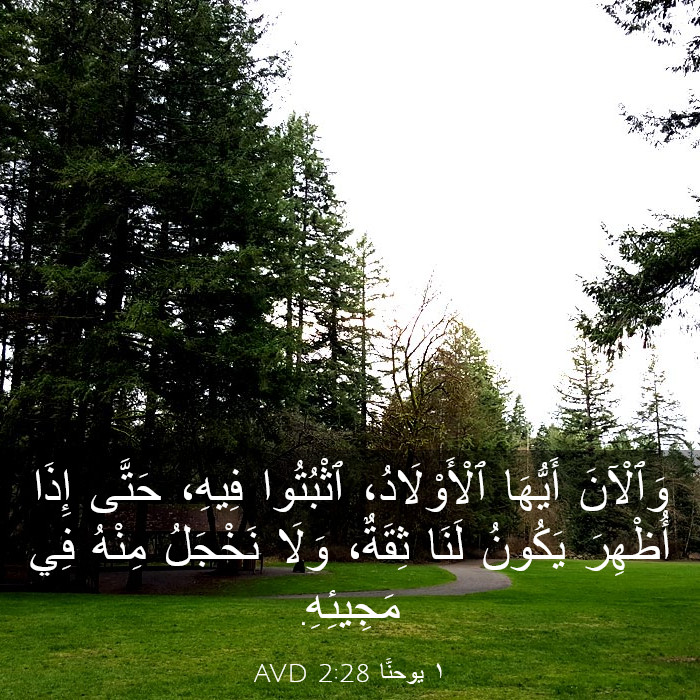 وَٱلْآنَ أَيُّهَا ٱلْأَوْلَادُ، ٱثْبُتُوا فِيهِ، حَتَّى إِذَا
أُظْهِرَ يَكُونُ لَنَا ثِقَةٌ، وَلَا نَخْجَلُ مِنْهُ فِي
مَجِيئِهِ.
١ يوحنَّا 2:28 AVD